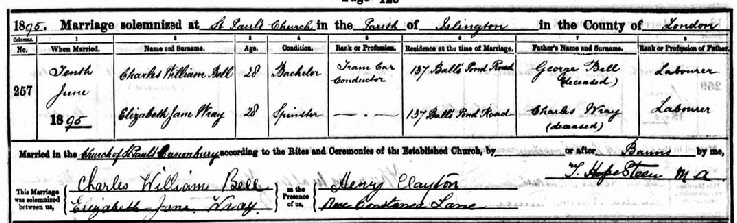 1895. Marriage solemnized at St Paul's Church in the Parish of Islington in the County of London
Columns. 1 2 3 4 5 6 7 8
No. When Married. Name and Surname. Age. Condition. Rank or Profession. Residence at the time of Marriage. Father's Name and Surname. Rank or Profession of Father.
257 Tenth June 1895 Charles William Bell 28 Bachelor Tram Car Conductor 137 Balls Pond Road George Bell (deceased) Labourer
Elizabeth Jane Wray 28 Spinster — . — 137 Balls Pond Road Charles Wray (deceased) Labourer
Married in the Church of St Paul's Canonbury according to the Rites and Ceremonies of the Established Church, by or after Banns by me,
T. Hope M A
This Marriage was solemnized between us, Charles William Bell in the Presence of us, Henry Clayton
Elizabeth Jane Wray Constance Lane